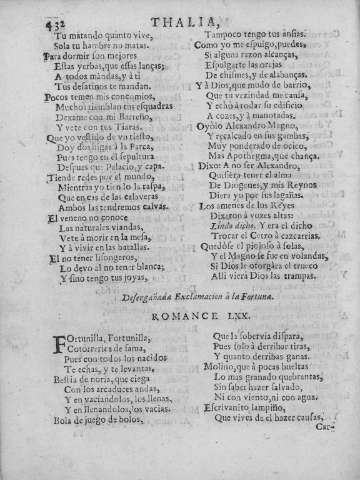 432
THALIA,
Tu matando quanto vive,
Sola tu hambre no matas.
Para dormir son mejores
Estas yerbas, que essas lanças;
A todos mandas, y à ti
Tus desatinos te mandan.
Pocos temen mis concomios,
Muchos tiemblan tus esquadras
Dexame con mi Barreño,
Y vete con tus Tiaras.
Que yo vestido de vn tiesto,
Doy dos higas à la Parca,
Pues tengo en el sepultura
Despues que Palacio, y capa.
Tiende redes por el mundo,
Mientras yo tiendo la raspa,
Que en cas de las calaveras
Ambos las tendremos calvas.
El veneno no conoce
Las naturales viandas,
Vete à morir en la mesa,
Y à vivir en las batallas.
El no tener lisongeros,
Lo devo al no tener blanca;
Y sino tengo tus joyas,
Tampoco tengo tus ansias.
Como yo me espulgo, puedes,
Si alguna razon alcanças,
Espulgarte las orejas
De chismes, y de alabanças.
Y à Dios, que mudo de barrio,
Que tu vezindad me cansa,
Y echò à rodar su edificio
A cozes, y à manotadas.
Oyòlo Alexandro Magno,
Y recalcado en sus gambas,
Muy ponderado de ocico,
Mas Apothegma, que chança.
Dixo: A no ser Alexandro,
Quisiera tener el alma
De Diogenes, y mis Reynos
Diera yo por sus lagañas.
Los amenes de los Reyes
Dixeron à vozes altas:
Lindo dicho. Y era el dicho
Trocar el Cetro à cazcarrias.
Quedòse el piojoso à solas,
Y el Magno se fue en volandas,
Si Dios le otorgàra el trueco
Alli viera Dios las trampas.
Desengañada Exclamacion à la Fortuna.
ROMANCE LXX.
FOrtunilla, Fortunilla,
Cotorrerica de fama,
Pues con todos los nacidos
Te echas, y te levantas,
Bestia de noria, que ciega
Con los arcaduces andas,
Y en vaciandolos, los llenas,
Y en llenandolos, los vacias.
Bola de juego de bolos,
Que la sobervia dispara,
Pues solo à derribar tiras,
Y quanto derribas ganas.
Molino, que à pocas bueltas
Lo mas granado quebrantas,
Sin saber hazer salvado,
Ni con viento, ni con agua.
Escrivanito lampiño,
Que vives de el hazer causas,
Car-